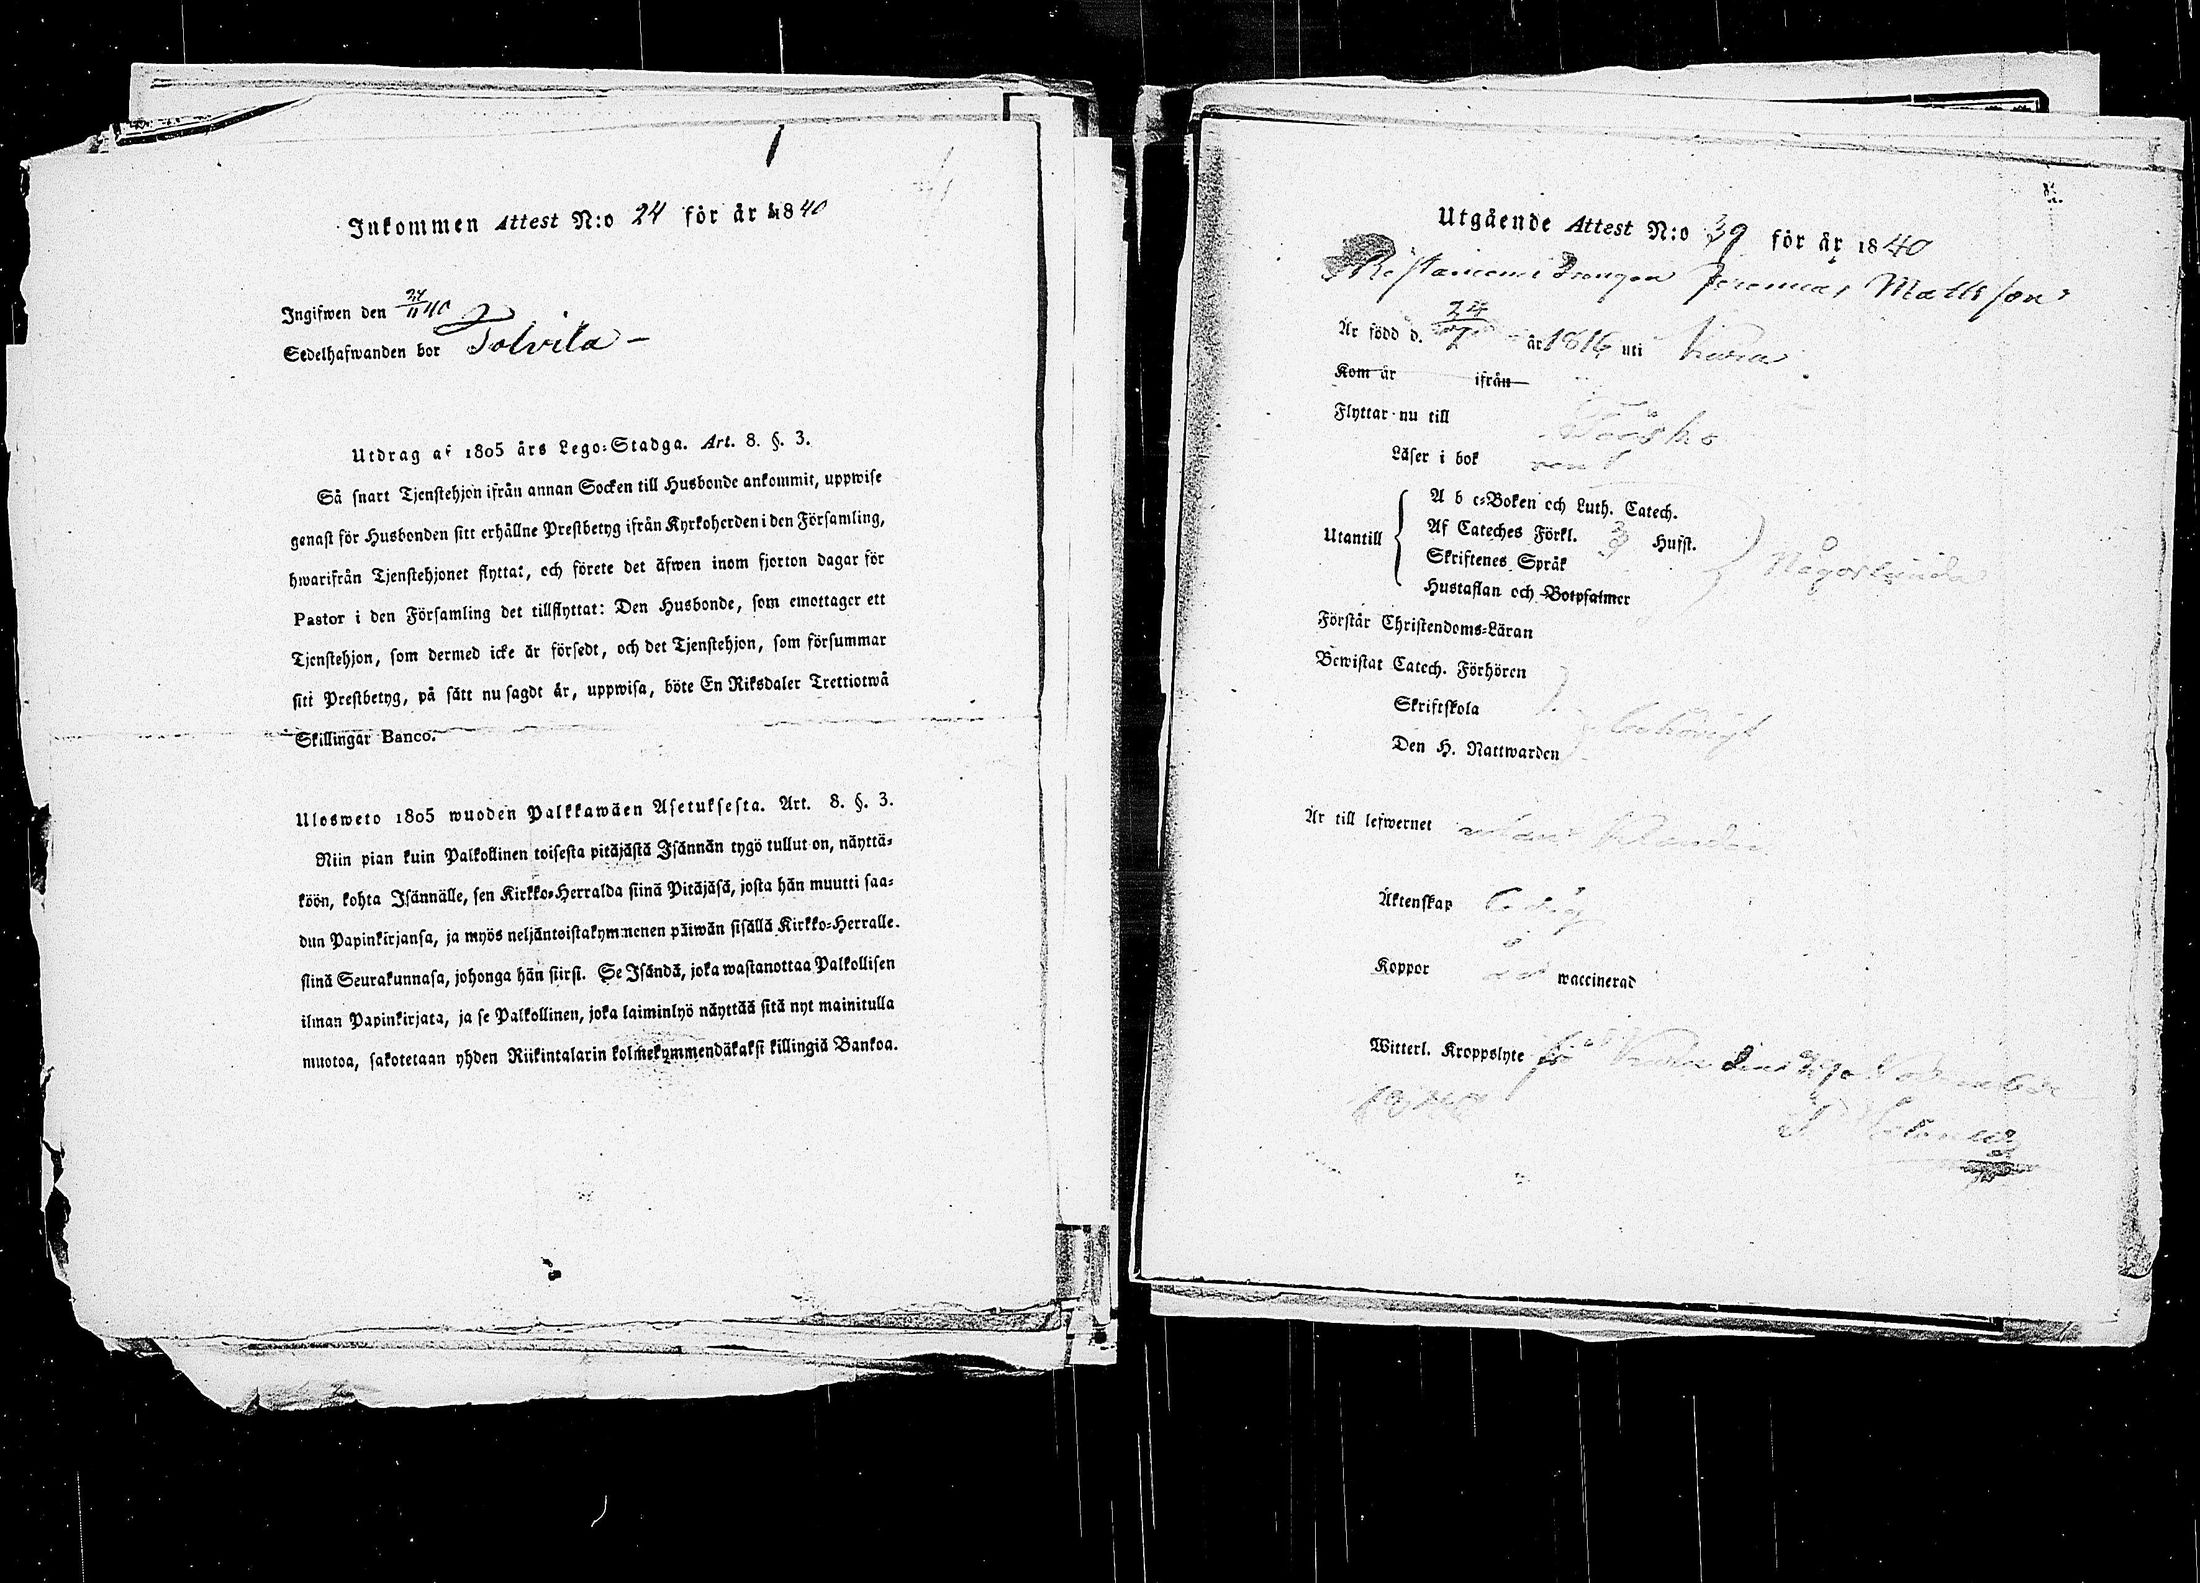 Inkommen Attest N:o 24 för år 1840
Ingifwen den 24/11 40
Sedelhafwanden bor Tolvila –
Utdrag af 1805 års Lego-Stadga. Art. 8. §. 3.
Så snart Tjenstehjon ifrån annan Socken till Husbonde ankommit, uppwise
genast för Husbonden sitt erhållne Prestbetyg ifrån Kyrkoherden i den Församling,
hwarifrån Tjenstehjonet flyttat, och förete det äfwen inom fjorton dagar för
Pastor i den Församling det tillflyttat: Den Husbonde, som emottager ett
Tjenstehjon, som dermed icke är försedt, och det Tjenstehjon, som försummar
sitt Prestbetyg, på sätt nu sagdt är, uppwisa, böte En Riksdaler Trettiotwå
Skillingar Banco.
Ulosweto 1805 wuoden Palkkawäen Asetuksesta. Art. 8. §. 3.
Niin pian kuin Palkollinen toisesta pitäjästä Isännän tygö tullut on, näyttä-
köön, kohta Isännälle, sen Kirkko-Herralda siinä Pitäjäsä, josta hän muutti saa-
dun Papinkirjansa, ja myös neljäntoistakymmenen päiwän sisällä Kirkko-Herralle.
siinä Seurakunnasa, johonga hän siirsi. Se Isändä, joka wastanottaa Palkollisen
ilman Papinkirjata, ja se Palkollinen, joka laiminlyö näyttää sitä nyt mainitulla
muotoa, sakotetaan yhden Riikintalarin kolmekymmendäkaksi killingiä Bankoa.
Utgående Attest N:o 39 för år 1840
Drengen Jeremias Mattsson
Är född d. 24 år 1816 uti
Kom år ifrån
Flyttar nu till
Läser i bok
Utantill
A b c-Boken och Luth. Catech.
Af Cateches Förkl. 3 Hufst.
Skriftenes Språk
Hustaflan och Botpsalmer
Någorlunda
Förstår Christendoms-Läran
Bewistat Catech. Förhören
Skriftskola
Den H. Nattwarden
behörigt
Är till lefwernet utan klander
Äktenskap ledig
Koppor waccinerad
Witterl. Kroppslyte
1840